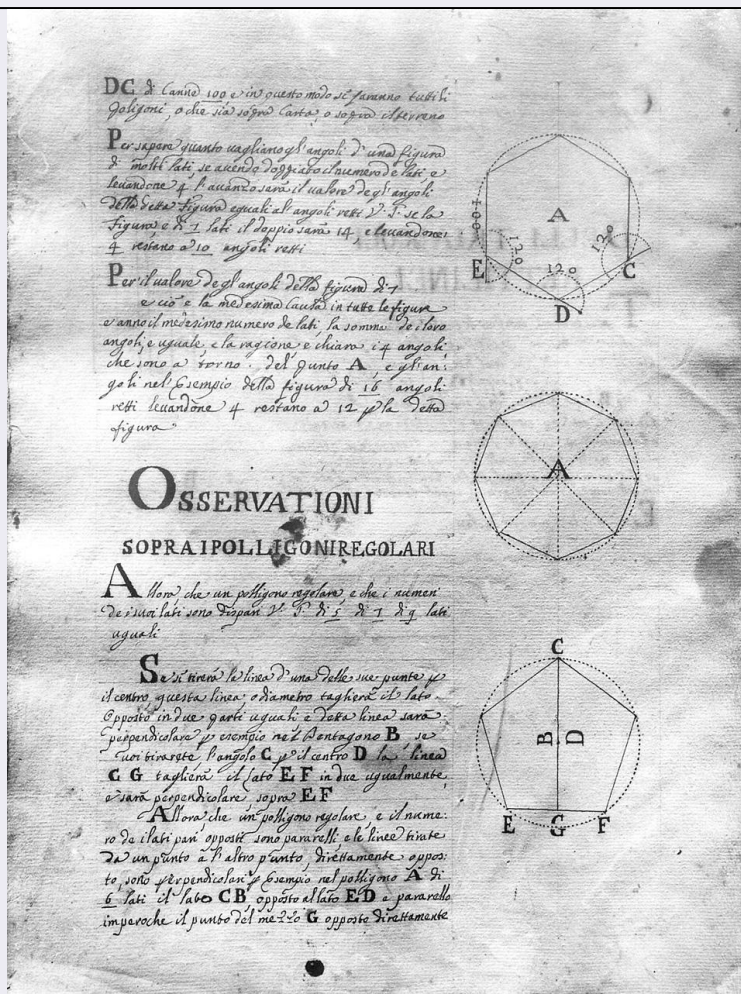 DC di Canne 100 e in questo modo si faranno tutti li
Poligoni, o che sia sopra Carta, o sopra il terreno
Per sapere quanto vagliano gl'angoli d'una figura
di molti lati, se avendo doppiato il numero de lati e
levandone 4 l'avanzo sarà il valore degl'angoli
della detta figura eguali al angoli retti V. P. se la
figura è di 7 lati il doppio sarà 14, e levandone
4 restano a 10 angoli retti
Per il valore degl'angoli della figura di 7
e ciò e la medesima Causa in tutte le figure
e anno il medesimo numero de lati la somma de i loro
angoli, e uguale e la ragione e chiara i 4 angoli
che sono a torno del punto A, e gl'an:
goli nel Esempio della figura di 16 angoli
retti levandone 4 restano a 12 p la detta
figura
OSSERVATIONI
SOPRA I POLLIGONI REGOLARI
Allora che un polligono regolare e che i numeri
de i suoi lati sono dispari V. P. di 5 di 7 di 9 lati
uguali
Se si tirerà la linea d'una delle sue punte p
il centro, questa linea o diametro taglierà il lato
Opposto in due parti uguali e detta linea sarà
perpendicolare p esempio nel Pentagono B se
voi tirarete l'angolo C p il centro D la linea
C G taglierà il lato E F in due ugualmente
e sarà perpendicolare sopra E F
Allora che un polligono regolare e il nume:
ro de i lati pari opposti sono pararelli, e le linee tirate
da un punto a l'altro punto, direttamente oppos:
to, sono perpendicolari p Esempio nel polligono A di
6 lati il lato CB opposto al lato ED e pararello
imperoche il punto del mezzo G opposto direttamente
A
100
120
120
120
E
C
D
A
C
B
D
E
G
F